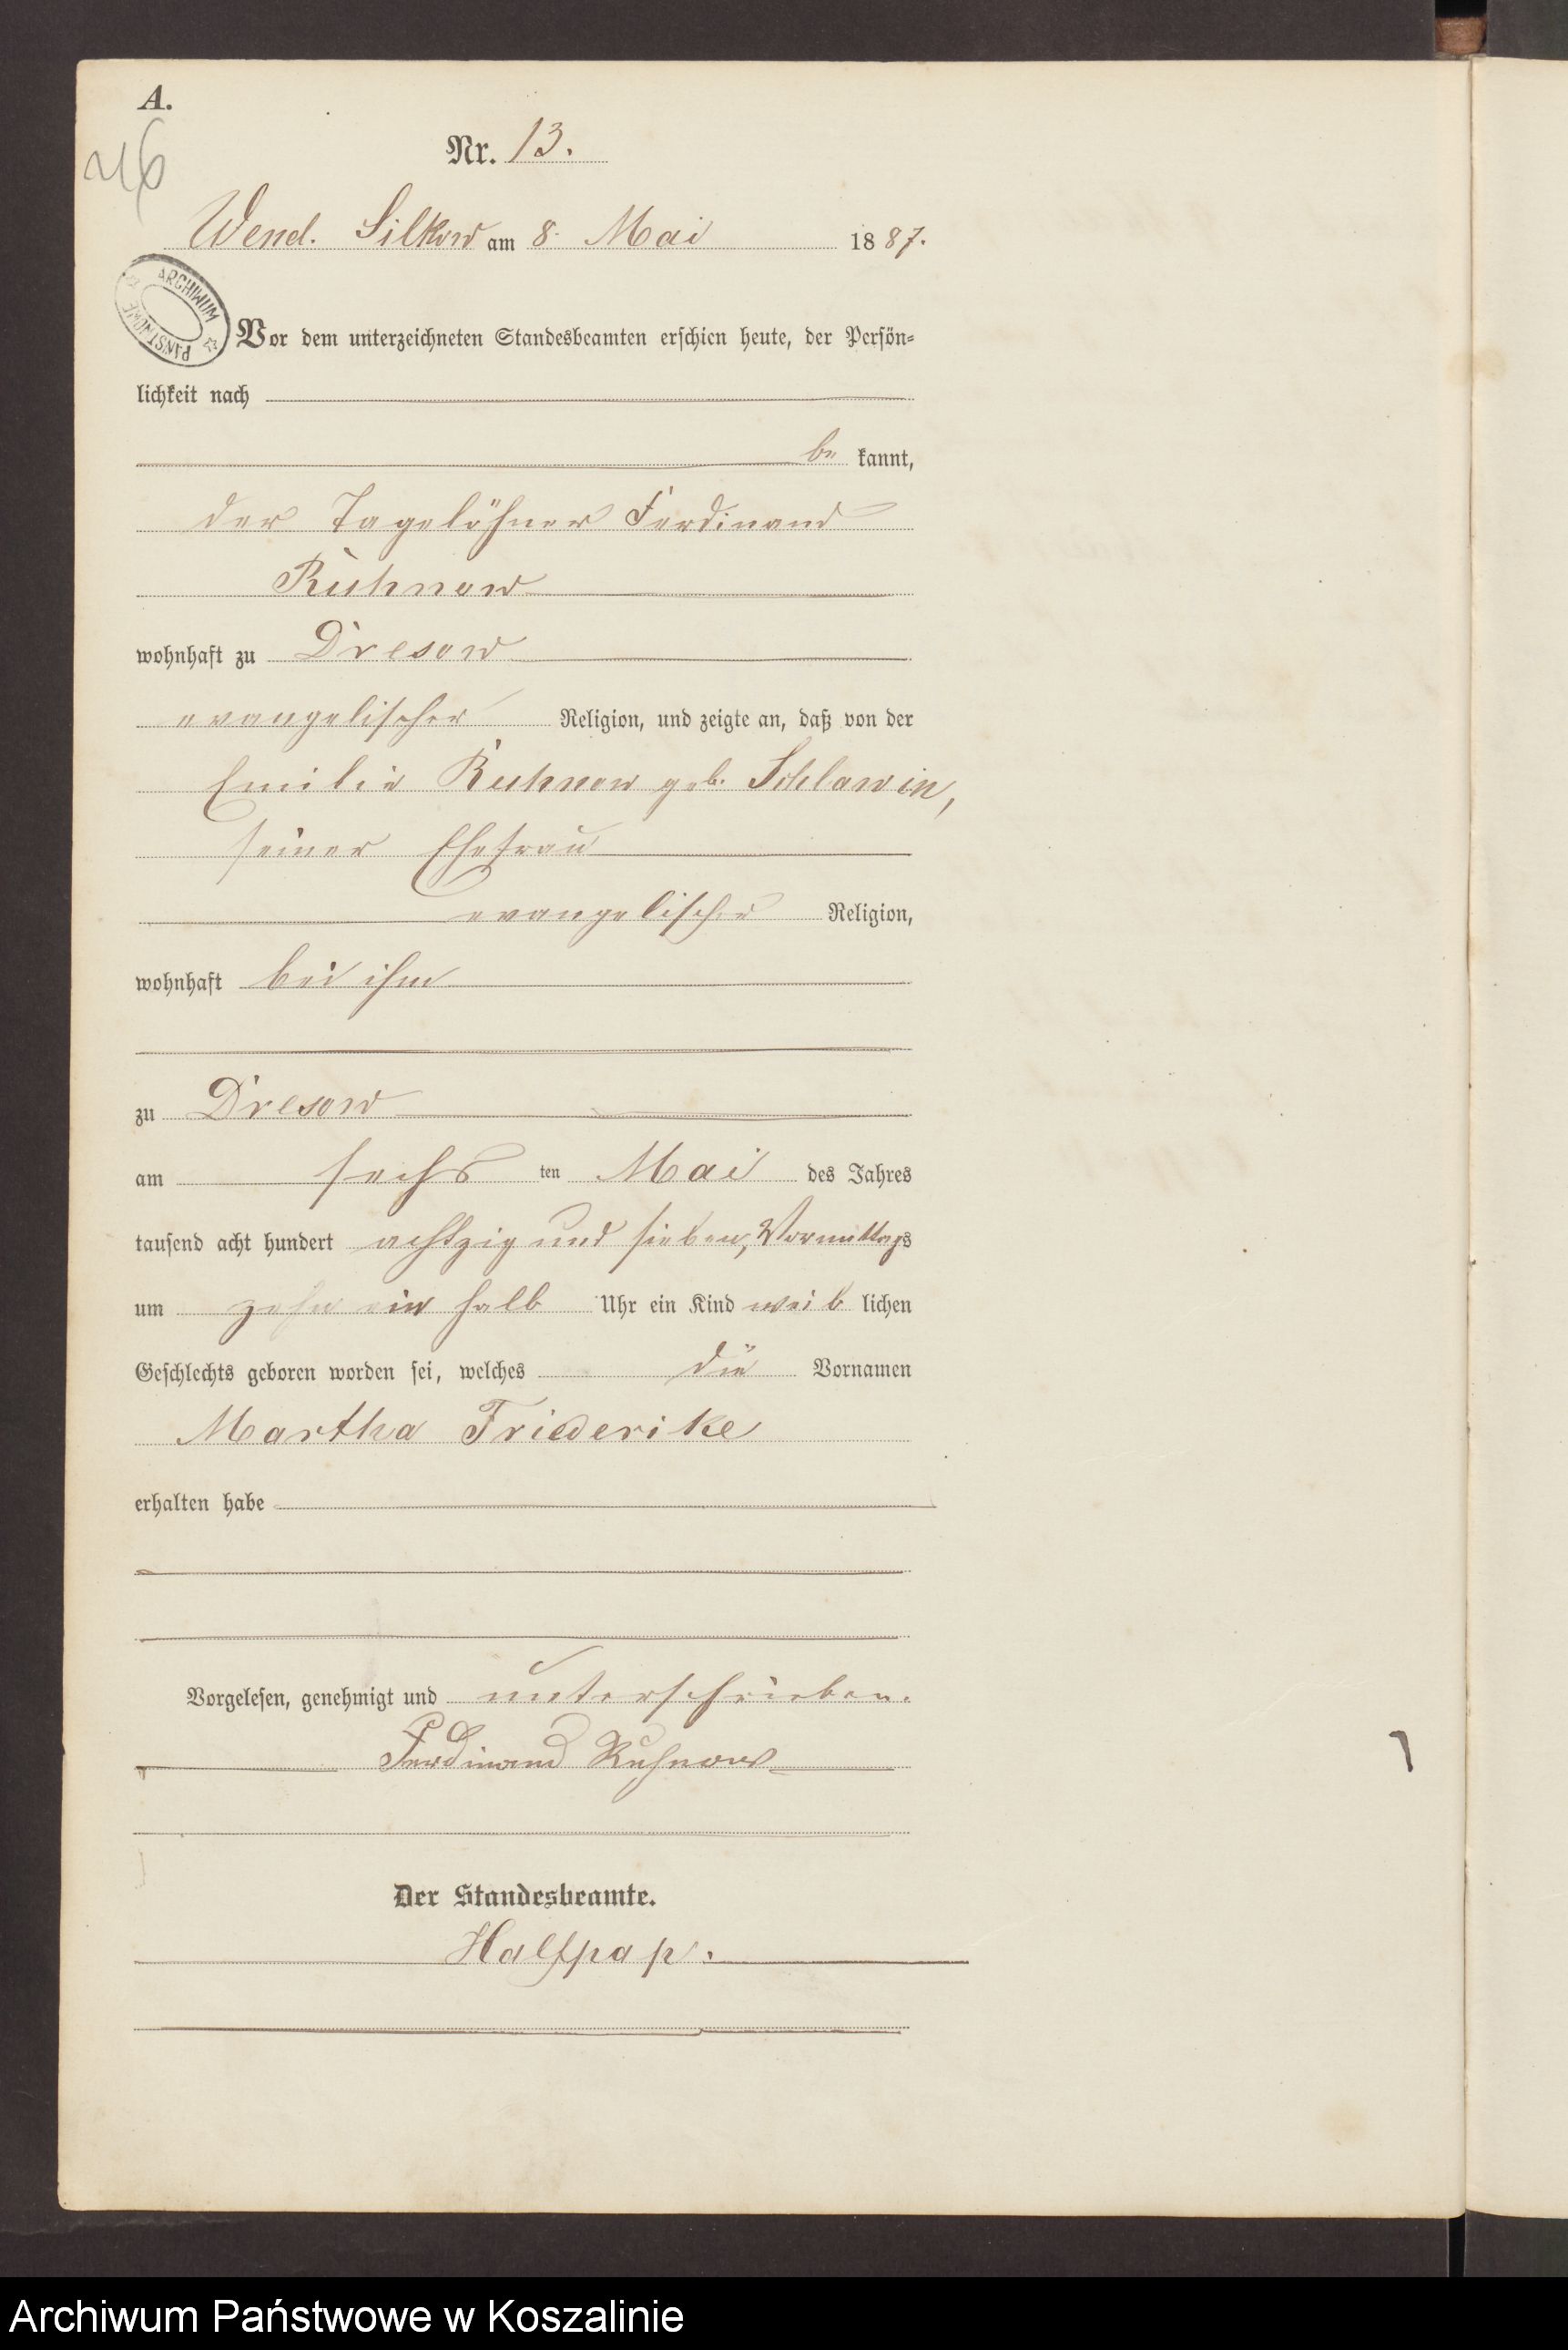 A.
46
Nr. 13.
Wend. Silkow am 8. Mai 1887.
ARCHIWUM PAŃSTWOWE
Vor dem unterzeichneten Standesbeamten erschien heute, der Persön=
lichkeit nach
be kannt,
der Tagelöhner Ferdinand
Ruhnow
wohnhaft zu Dresow
evangelischer Religion, und zeigte an, daß von der
Emilie Ruhnow geb. Schlawin,
seiner Ehefrau
evangelischer Religion,
wohnhaft bei ihm
zu Dresow
am sechs ten Mai des Jahres
tausend acht hundert achtzig und sieben, Vormittags
um zehn ein halb Uhr ein Kind weib lichen
Geschlechts geboren worden sei, welches die Vornamen
Martha Friederike
erhalten habe
Vorgelesen, genehmigt und unterschrieben.
Ferdinand Ruhnow
Der Standesbeamte.
Halfpap.
Archiwum Państwowe w Koszalinie